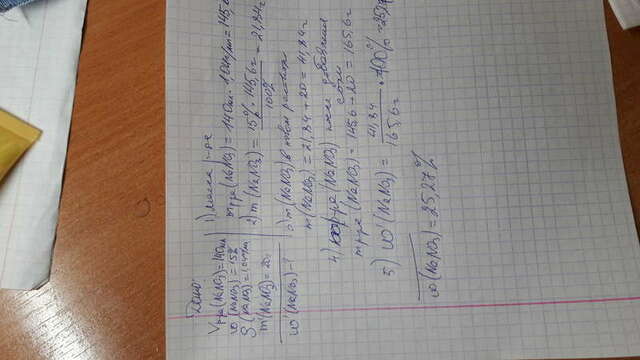 Дано:
Vр-ра(NaNO3)=140мл
ω(NaNO3)=15%
ρ(NaNO3)=1,04г/мл
m(NaNO3)=20г
ω'(NaNO3)-?
1) масса р-ра
mр-ра(NaNO3)=140мл·1,04г/мл=145,6
2) m(NaNO3)=15%·145,6г/100%=21,84г
3) m(NaNO3) в новом растворе
m(NaNO3)=21,84+20=41,84г
4) р-ра(NaNO3) после добавления
соли
mр-ра(NaNO3)=145,6+20=165,6г
5) ω'(NaNO3)=41,84/165,6г·100%=25,27
ω(NaNO3)=25,27%